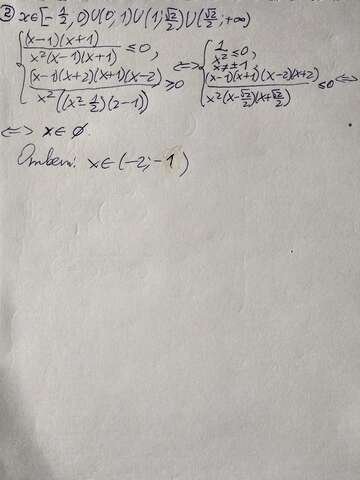 ② x∈[-1/2; 0)∪(0; 1)∪(1; √2/2)∪(√2/2; +∞)
{ (x-1)(x+1)/x²(x-1)(x+1) ≤0, (x-1)(x+2)(x+1)(x-2)/x²((x²-1/2)(2-1)) ≥0 ⟺ { 1/x² ≤0, x≠±1, (x-1)(x+1)(x-2)(x+2)/x²(x-√2/2)(x+√2/2) ≤0 ⟺
⟺ x∈∅.
Ответ: x∈(-2; -1)